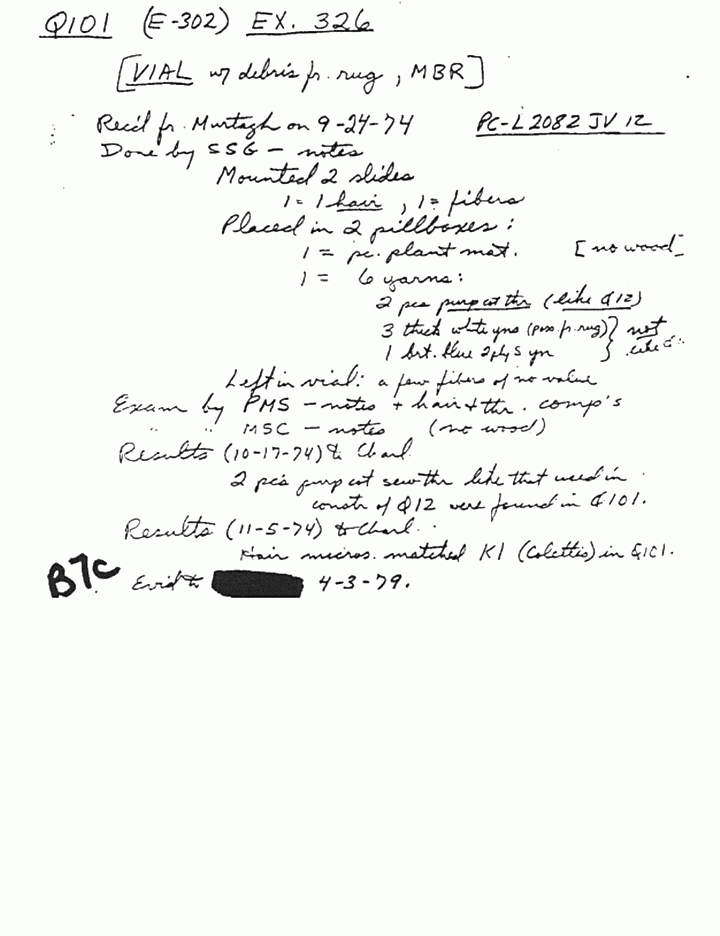 Q101 (E-302) EX. 326
[VIAL w/ debris fr. rug, MBR]
Rec'd fr. Murtagh on 9-24-74 PC-L2082 JV 12
Done by SSG - notes
Mounted 2 slides
1 = 1 hair, 1 = fibers
Placed in 2 pillboxes:
1 = pc. plant mat. [no wood]
1 = 6 yarns:
2 pcs purp cot thr (like Q12)
3 thick white yns (poss. fr. rug) } not
1 brt. blue 2 ply S yn } like
Left in vial: a few fibers of no value
Exam by PMS - notes + hair + thr. comp's
" " MSC - notes (no wood)
Results (10-17-74) to Charl.
2 pcs purp cot sew thr like that used in
constr of Q12 were found in Q101.
Results (11-5-74) to Charl.
Hair micros. matched K1 (Colette's) in Q101.
B7C Evid to 4-3-79.